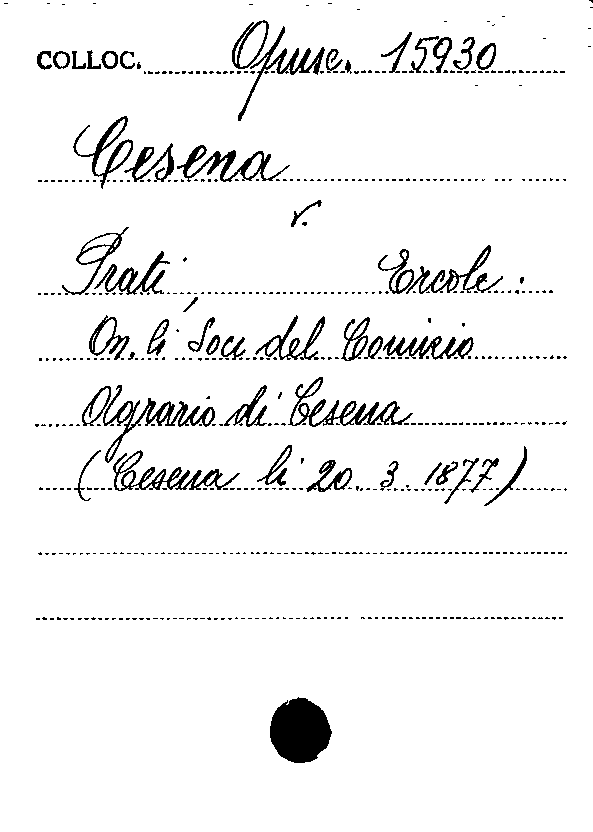 COLLOC. Opusc. 15930
Cesena
v.
Prati, Ercole.
On.li Soci del Comizio
Agrario di Cesena
(Cesena li 20. 3. 1877)